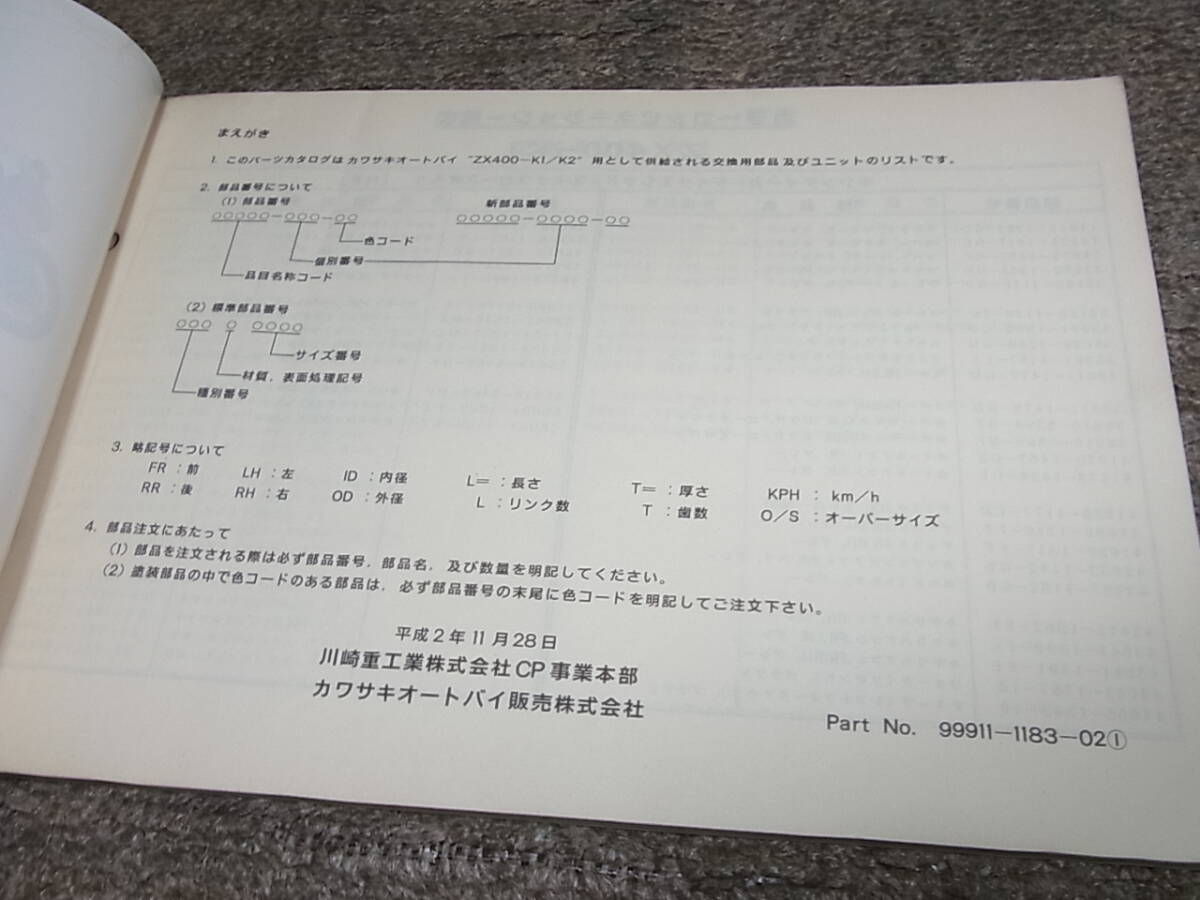 まえがき
1. このパーツカタログは カワサキオートバイ "ZX400-K1/K2" 用として供給される交換用部品及びユニットのリストです。
2. 部品番号について
(1) 部品番号 新部品番号
○○○○○-○○○-○○ ○○○○○-○○○○-○○
色コード
個別番号
品目名称コード
(2) 標準部品番号
○○○ ○ ○○○○
サイズ番号
材質, 表面処理記号
種別番号
3. 略記号について
FR : 前 LH : 左 ID : 内径 L= : 長さ T= : 厚さ KPH : km/h
RR : 後 RH : 右 OD : 外径 L : リンク数 T : 歯数 O/S : オーバーサイズ
4. 部品注文にあたって
(1) 部品を注文される際は必ず部品番号, 部品名, 及び数量を明記してください。
(2) 塗装部品の中で色コードのある部品は, 必ず部品番号の末尾に色コードを明記してご注文下さい。
平成2年11月28日
川崎重工業株式会社CP事業本部
カワサキオートバイ販売株式会社
Part No. 99911-1183-02①